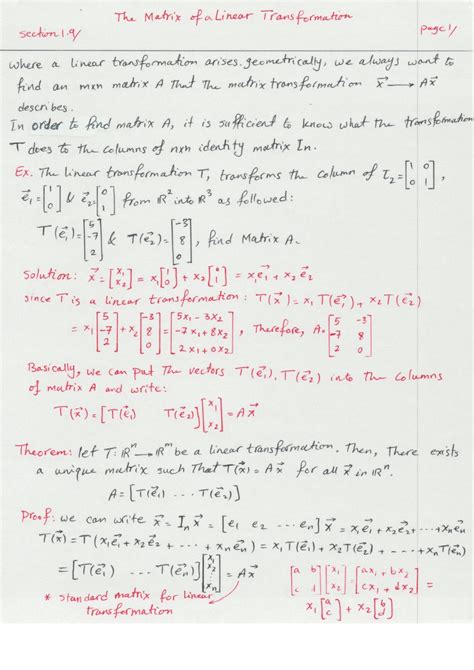 The Matrix of a Linear Transformation
section 1.9/ page 1/
where a linear transformation arises geometrically, we always want to
find an mxn matrix A That The matrix transformation x⃗ → Ax⃗
describes.
In order to find matrix A, it is sufficient to know what the transformation
T does to the columns of nxn identity matrix In.
Ex. The linear transformation T, transforms the column of I₂ = [1 0; 0 1],
e⃗₁ = [1; 0] & e⃗₂ = [0; 1] from ℝ² into ℝ³ as followed:
T(e⃗₁) = [5; -7; 2] & T(e⃗₂) = [-3; 8; 0], find Matrix A.
Solution: x⃗ = [x₁; x₂] = x₁[1; 0] + x₂[0; 1] = x₁e⃗₁ + x₂e⃗₂
since T is a linear transformation: T(x⃗) = x₁T(e⃗₁) + x₂T(e⃗₂)
= x₁[5; -7; 2] + x₂[-3; 8; 0] = [5x₁ - 3x₂; -7x₁ + 8x₂; 2x₁ + 0x₂], Therefore, A = [5 -3; -7 8; 2 0]
Basically, we can put The vectors T(e⃗₁), T(e⃗₂) into the columns
of matrix A and write:
T(x⃗) = [T(e⃗₁) T(e⃗₂)][x₁; x₂] = Ax⃗
Theorem: let T: ℝⁿ → ℝᵐ be a linear transformation. Then, There exists
a unique matrix such That T(x⃗) = Ax⃗ for all x⃗ in ℝⁿ.
A = [T(e⃗₁) ... T(e⃗₂)]
Proof: we can write x⃗ = Iₙx⃗ = [e₁ e₂ ... eₙ]x⃗ = x₁e⃗₁ + x₂e⃗₂ + ... + xₙe⃗ₙ
T(x⃗) = T(x₁e⃗₁ + x₂e⃗₂ + ... + xₙe⃗ₙ) = x₁T(e⃗₁) + x₂T(e⃗₂) + ... + xₙT(e⃗ₙ)
= [T(e⃗₁) ... T(e⃗ₙ)][x₁; x₂; ⋮; xₙ] = Ax⃗
* standard matrix for linear
transformation
[a b; c d][x₁; x₂] = [ax₁ + bx₂; cx₁ + dx₂] =
x₁[a; c] + x₂[b; d]